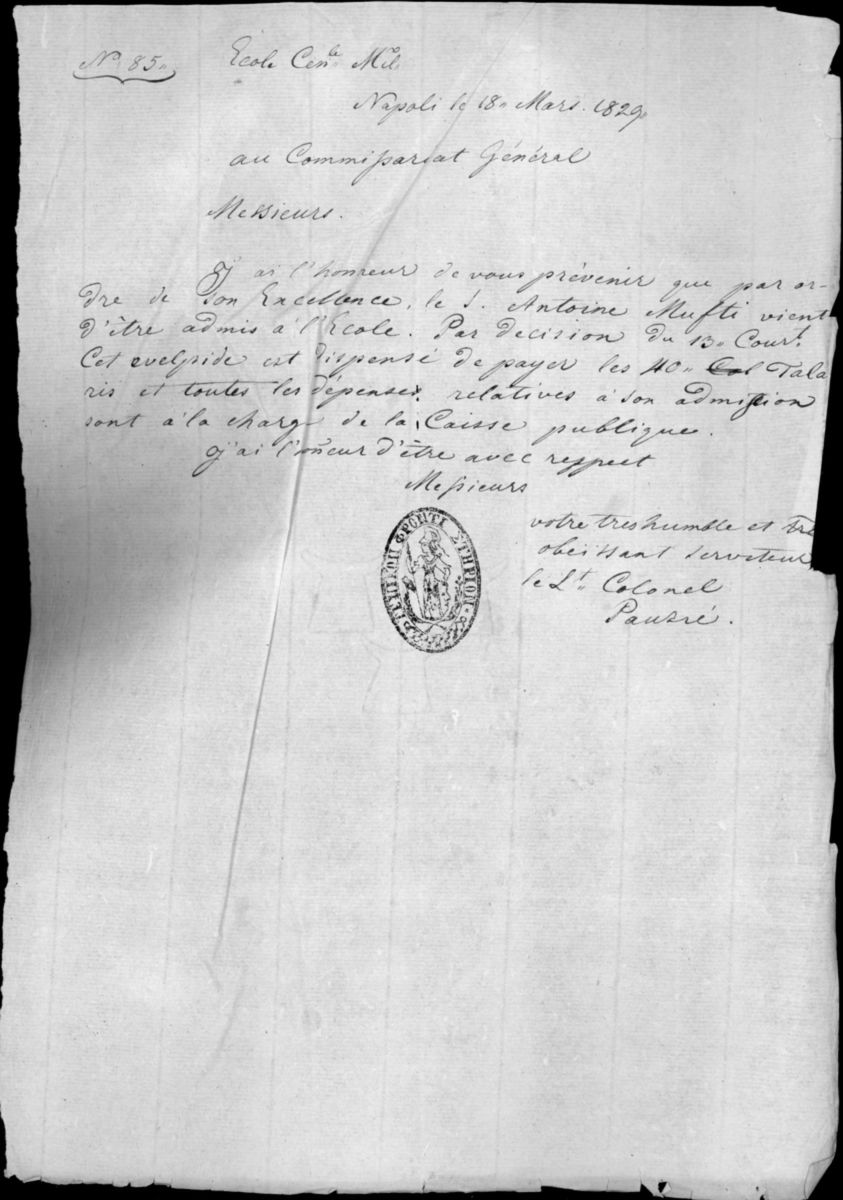 N° 85„
Ecole Cen.le Mil.
Napoli le 18„ Mars. 1829„
au Commissariat Général
Messieurs.
J'ai l'honneur de vous prévenir que par or-
dre de Son Excellence, le S. Antoine Mufti vient
d'être admis à l'Ecole. Par decision du 13„ Cour.t
Cet evelpide est dispensé de payer les 40„ Col Tala
ris et toutes les dépenses relatives à son admission
sont à la charg de la Caisse publique.
J'ai l'oñeur d'être avec respect
Messieurs
votre tres humble et trè
obéissant serviteur
le Lt„ Colonel
Pauzié.
ΦΡΟΝΤΙΣΤΗΡΙΟΝ